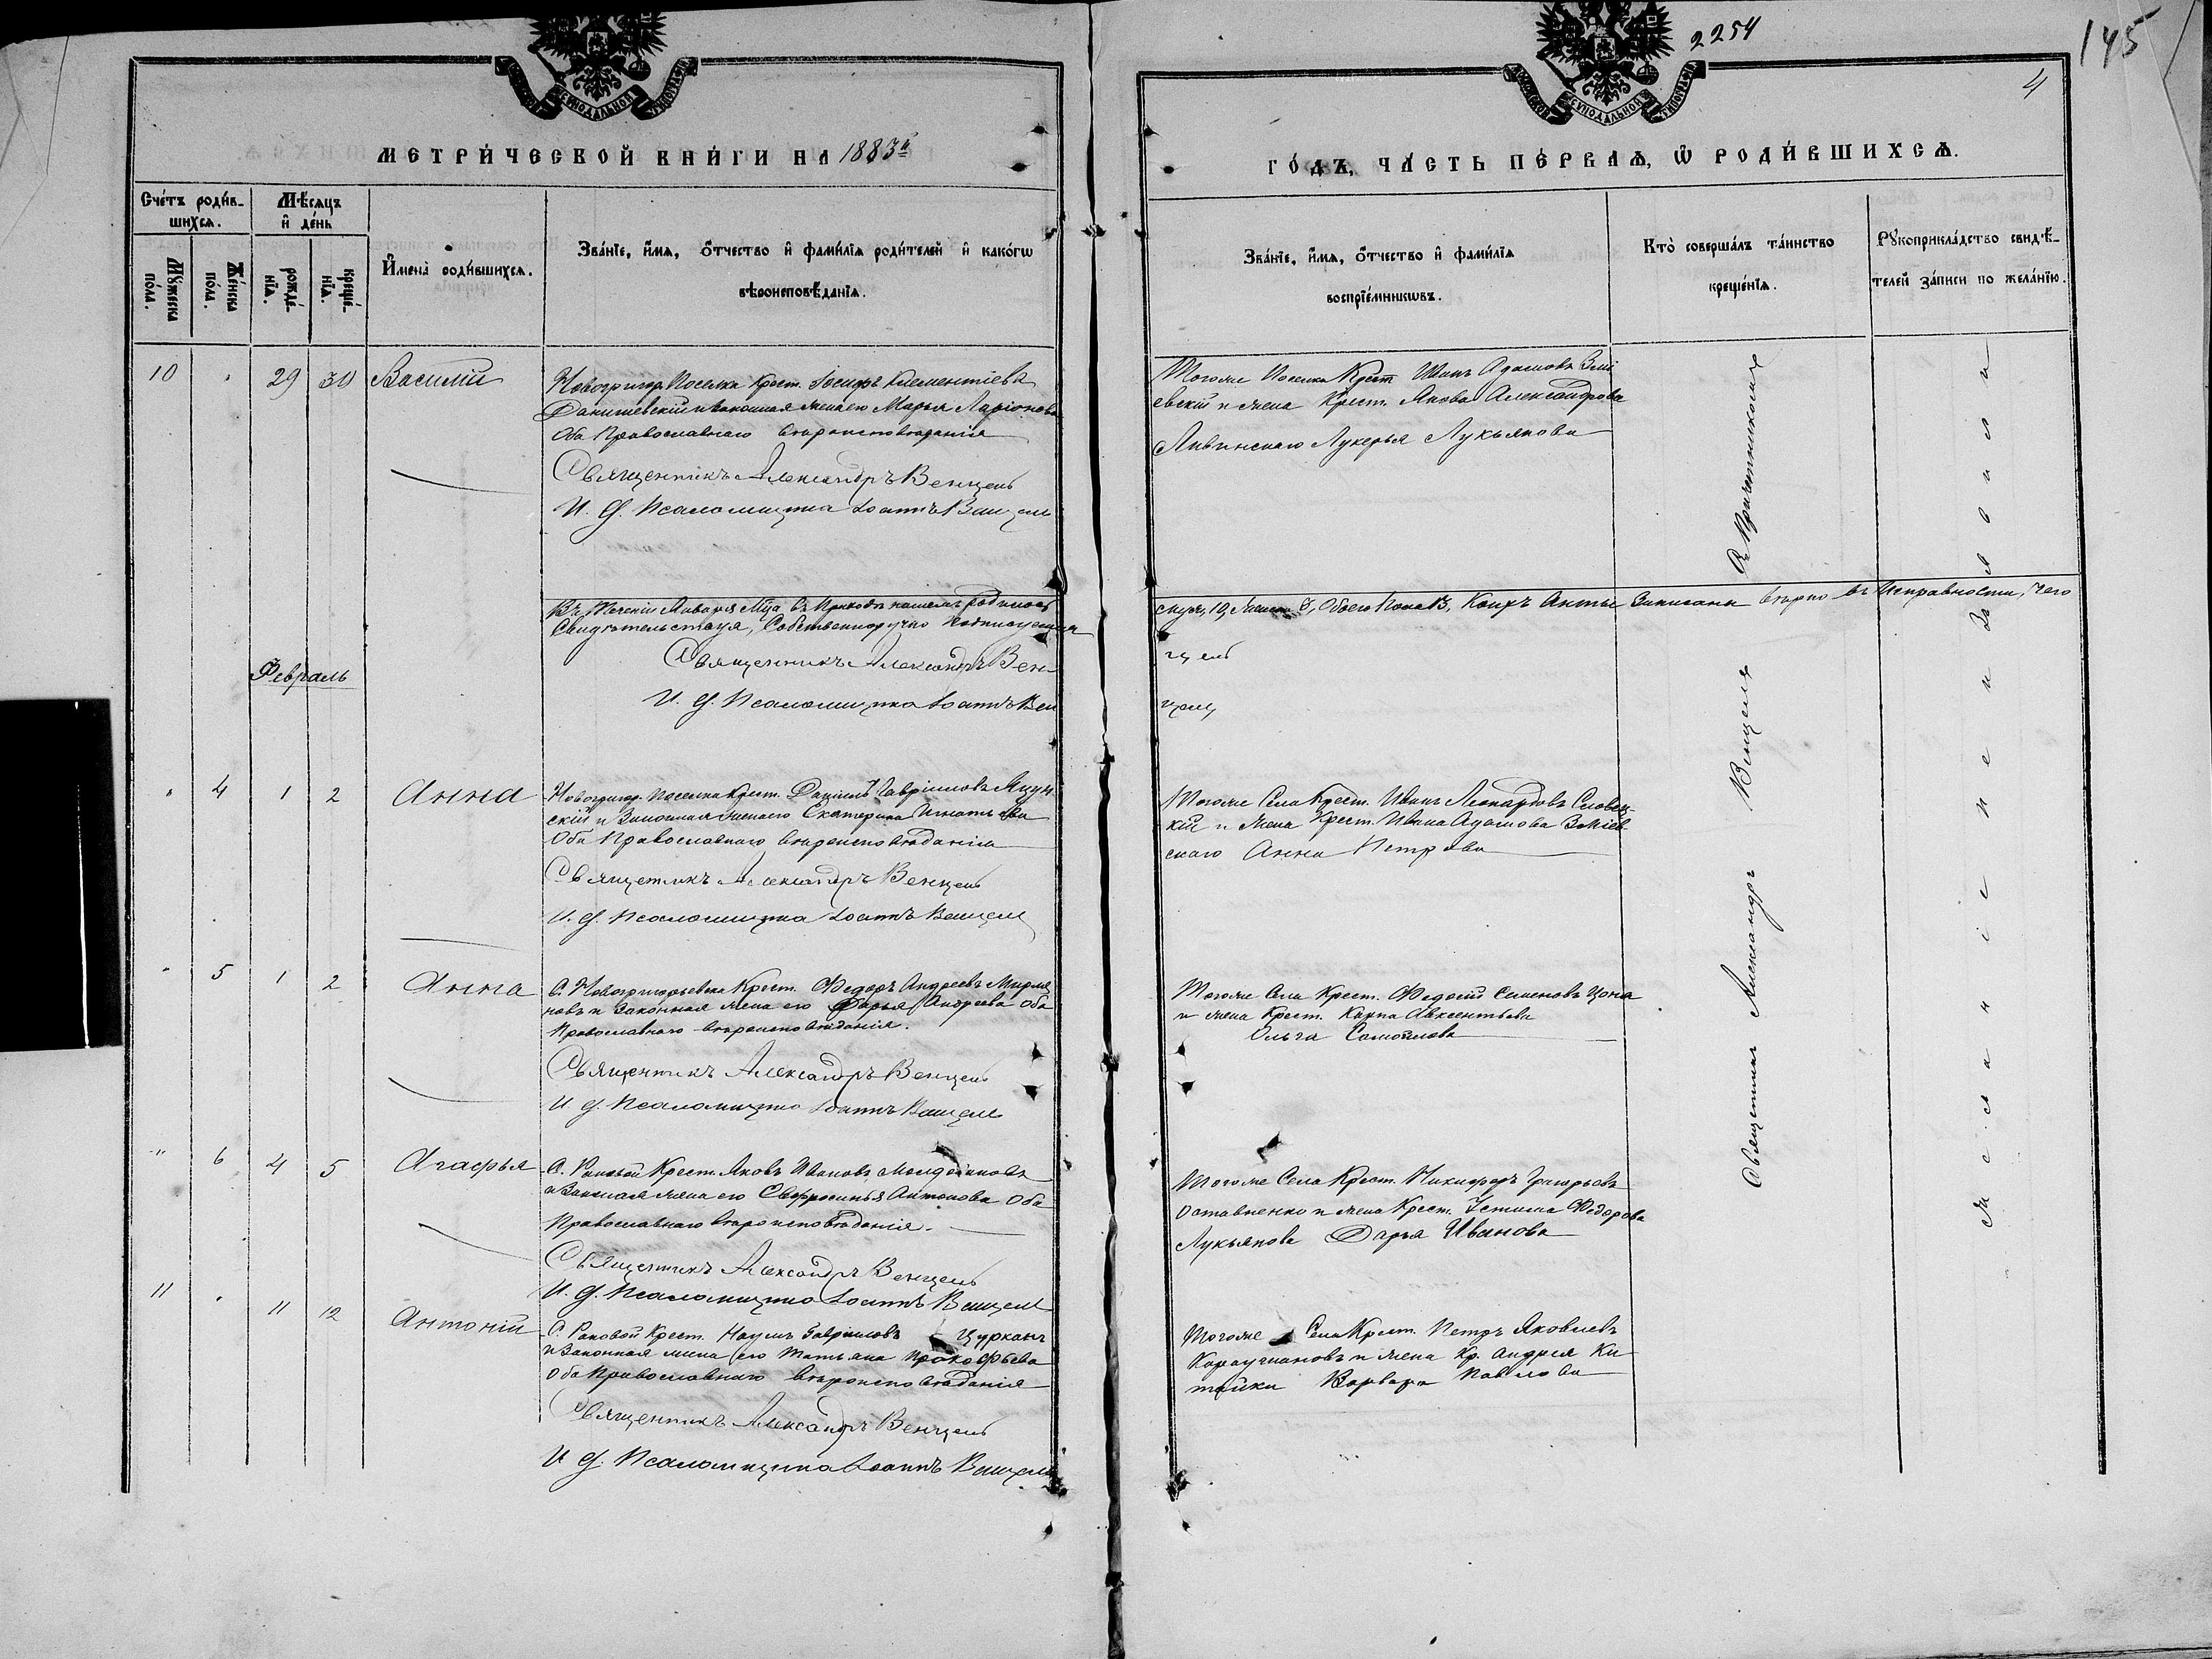 2254
145
4
МЕТРИ́ЧЕСКОЙ КНИ́ГИ НА 1883й
ГО́ДЪ, ЧА́СТЬ ПЕ́РВАѦ, Ѽ РОДИ́ВШИХСѦ.
Сче́тъ роди́в-
шихсѧ.
Мѣ́сѧцъ
и҆ де́нь
Мꙋ́жеска
по́ла.
Же́нска
по́ла.
рожде́-
нїѧ.
креще́-
нїѧ.
И҆мена̀ роди́вшихсѧ.
Зва́нїе, и҆́мѧ, ѻ҆́тчество и҆ фами́лїѧ роди́телей и҆ како́гѡ
вѣроисповѣ́данїѧ.
Зва́нїе, и҆́мѧ, ѻ҆́тчество и҆ фами́лїѧ
воспрїе́мникѡвъ.
Кто̀ соверша́лъ та́инство
креще́нїѧ.
Рꙋкоприкла́дство свидѣ́-
телей за́писи по жела́нїю.
10 " 29 30 Василій
Новогригор. Поселка Крест. Іосифъ Климентіевъ
Данишевскій и законная жена его Марья Ларіонова
Оба Православнаго вѣроисповѣданія
Священникъ Александръ Венцель
И. д. Псаломщика Іоаннъ Венцель
Тогоже Поселка Крест Иванъ Адамовъ Змі
евскій и жена Крест. Якова Александрова
Ливинскаго Лукерья Лукьянова
Въ теченіи Января М-ца въ Приходѣ нашемъ родилось
Свидѣтельствуя, Собственноручно Подписуемся
муж, 10, женска 3, Обоего Пола 13, Коихъ Акты Записаны вѣрно въ Исправности, Чего
Священникъ Александръ Вен-
цель
И. д. Псаломщика Іоаннъ Вен
цель
Февраль
" 4 1 2 Анна
Новогригор. Поселка Крест. Даніилъ Гавріиловъ Яцун
скій и Законная жена его Екатерина Игнатьева
Оба Православнаго вѣроисповѣданія
Священникъ Александръ Венцель
И. д. Псаломщика Іоаннъ Венцель
Тогоже Села Крест. Иванъ Леонардовъ Словец-
кій и жена Крест. Ивана Адамова Зміев
скаго Анна Петрова
" 5 1 2 Анна
С. Новогригорьевка Крест. Федоръ Андреевъ
новъ и Законная жена его Дарья Андреева Оба
Православнаго вѣроисповѣданія.
Священникъ Александръ Венцель
И. д. Псаломщика Іоаннъ Венцель
Тогоже Села Крест. Федосій Семеновъ Цона
и жена Крест. Карпа Авксентьева
Ольга Самойлова
" 6 4 5 Агафья
С. Раковой Крест. Яковъ Ивановъ Молдовановъ
и Законная жена его Евфросинья Антонова Оба
Православнаго вѣроисповѣданія.
Священникъ Александръ Венцель
И. д. Псаломщика Іоаннъ Венцель
Тогоже Села Крест. Никифоръ Григорьевъ
Оставненко и жена Крест. Устина Федорова
Лукьянова Дарья Иванова
11 " 11 12 Антоній
С. Раковой Крест. Наумъ Гавріиловъ Цурканъ
и Законная жена его Татьяна Прокофьева
Оба Православнаго вѣроисповѣданія
Священникъ Александръ Венцель
И. д. Псаломщика Іоаннъ Венцель
Тогоже Села Крест. Петръ Яковлевъ
Караучановъ и жена Кр. Андрея Ки
тайки Варвара Павлова
Священникъ Александръ Венцель съ Причетникомъ
Желанія не изъявили